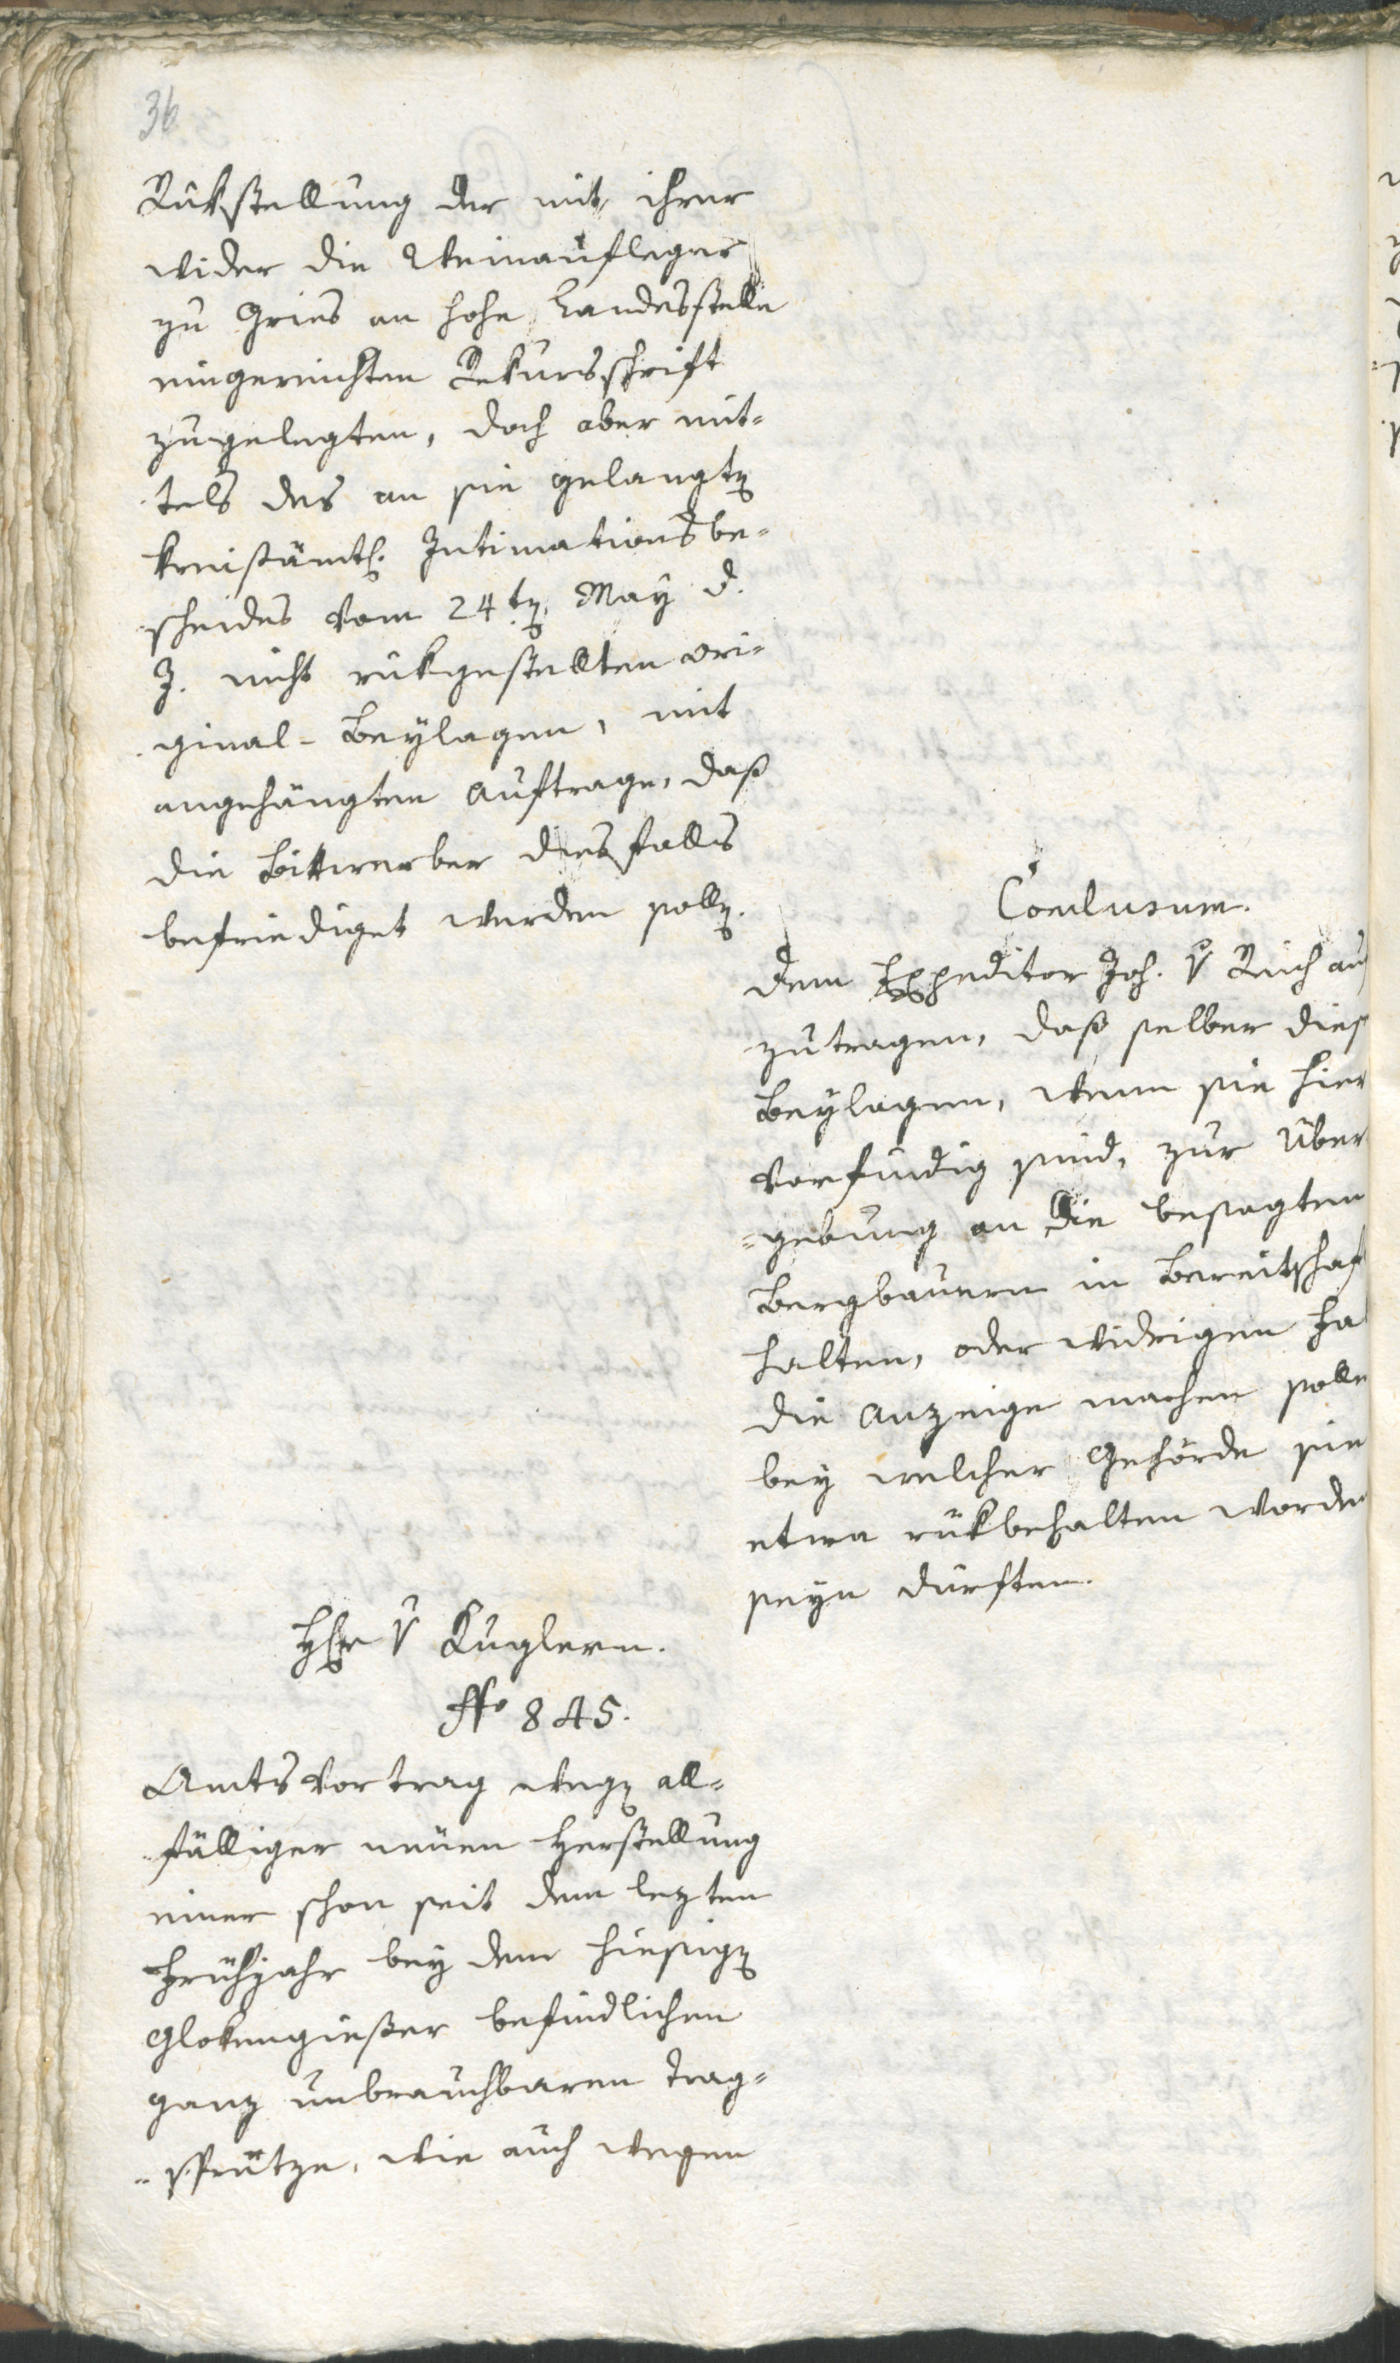 36
Rükstellung der mit ihrer
wider die Weinaufleger
zu Gries an hohe Landesstelle
eingereichten Rekursschrift
zugelegten, doch aber mit-
tels des an sie gelangten
kreisämtl. Intimationsbe-
scheides vom 24ten May d.
J. nicht rükgestellten Ori-
ginal-Beylagen, mit
angehängtem Auftrage, daß
die Bittwerber diesfalls
befriediget werden sollen.
Conclusum.
Dem Expeditor Joh. v Reich auf
zutragen, daß selber dies
Beylagen, wenn sie hier
vorfindig sind, zur Über
=gebung an die besagten
Bergbauern in Bereitschaf
halten, oder widrigen Fa
die Anzeige machen solle
bey welcher Gehörde sie
etwa rükbehalten worden
seyn dürften.
Hr v Kuglern.
No 845.
Amtsvortrag wegen all-
fälliger neuen Herstellung
einer schon seit dem lezten
Frühjahr bey dem hiesigen
Glokengießer befindlichen
ganz unbrauchbaren Trag-
=sprütze, wie auch wegen